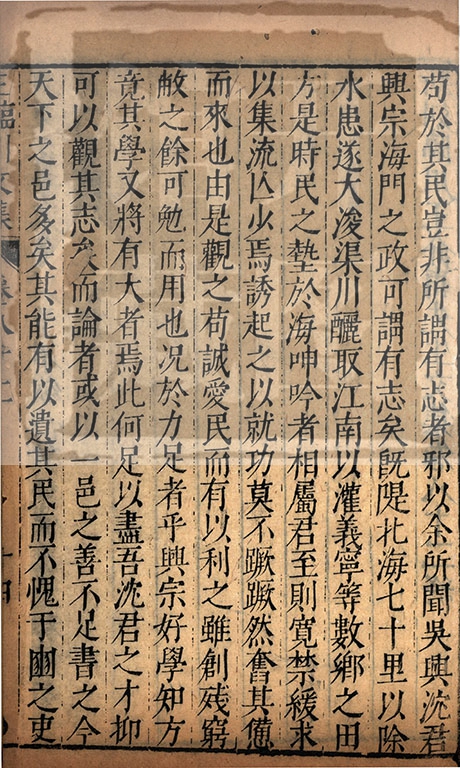 苟於其民豈非所謂有志者邪以余所聞吳興沈君
興宗海門之政可謂有志矣旣隄北海七十里以除
水患遂大浚渠川釃取江南以灌義寧等數鄉之田
方是時民之墊於海呻吟者相屬君至則寬禁緩求
以集流亾少焉誘起之以就功莫不蹶蹶然奮其憊
而來也由是觀之苟誠愛民而有以利之雖創残窮
敝之餘可勉而用也况於力足者乎興宗好學知方
竟其學又將有大者焉此何足以盡吾沈君之才抑
可以觀其志矣而論者或以一邑之善不足書之今
天下之邑多矣其能有以遺其民而不愧于豳之吏
王臨川文集 卷八十二